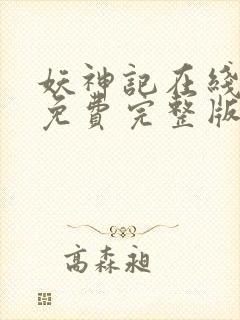 妖神記在綫
免費完整版
高森昶